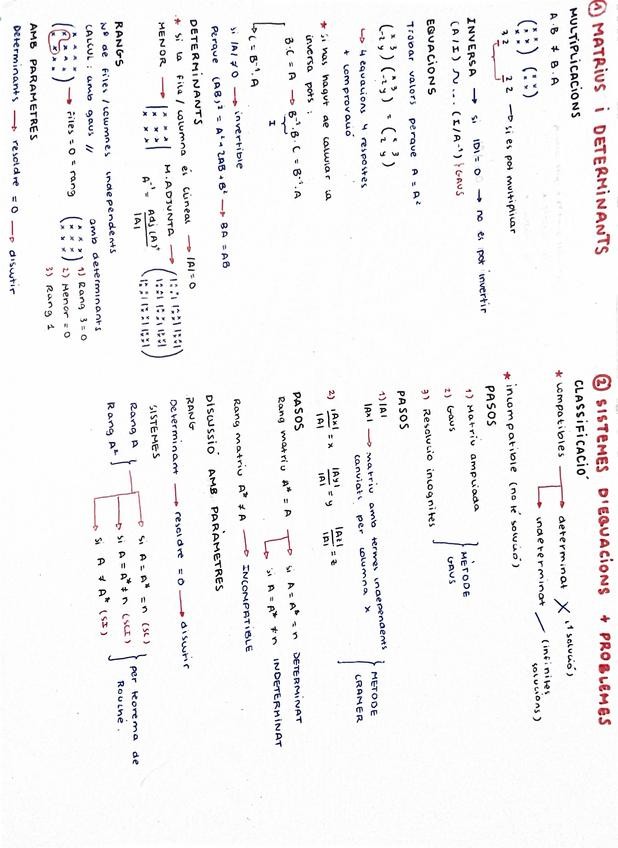 ① MATRIUS i DETERMINANTS
MULTIPLICACIONS
A.B ≠ B.A
(x x x / x x x) (x x / x x / x x)
3 2 2 2 → si es pot multiplicar
INVERSA → si |D| = 0 → no es pot invertir
(A/I) ~ ... (I/A⁻¹) } GAUS
EQUACIONS
Trobar valors perque A = A²
(x 3 / -2 y) (x 3 / -2 y) = (x 3 / -2 y)
↳ 4 equacions 4 respostes
+ comprovació
* si nos hagut de calcular la
inversa pots:
B·C = A → B⁻¹·B·C = B⁻¹·A
I
C = B⁻¹·A
si |A| ≠ 0 → invertible
Perque (AB)² = A² + 2AB + B² → BA = AB
DETERMINANTS
* si la fila / columna es C.lineal → |A| = 0
MENOR → |x x x / x x x| M. ADJUNTA →
A⁻¹ = Adj (A)ᵗ / |A|
RANGS
Nº de files / columnes independents
CALCUL: amb gaus // amb determinants
→ Files = 0 = rang
1) Rang 3 = 0
2) Menor = 0
3) Rang 1
AMB PARAMETRES
Determinants → resoldre = 0 → discutir
② SISTEMES D'EQUACIONS + PROBLEMES
CLASSIFICACIÓ
* compatibles → determinat X (1 solució)
→ indeterminat / (infinites
solucions)
* incompatible (no té solució)
PASOS
1) Matriu ampliada
2) Gaus
3) Resolució incognites
} METODE
GAUS
PASOS
1) |A|
|Ax| → matriu amb termes independents
canviats per columna x
2) |Ax| / |A| = x |Ay| / |A| = y |Az| / |A| = z
} METODE
CRAMER
PASOS
Rang matriu A* = A → si A = A* = n DETERMINAT
→ si A = A* ≠ n INDETERMINAT
Rang matriu A* ≠ A → INCOMPATIBLE
DISCUSSIÓ AMB PARÀMETRES
RANG
Determinant → resoldre = 0 → discutir
SISTEMES
Rang A
Rang A*
→ si A = A* = n (SC)
→ si A = A* ≠ n (SCI)
→ si A ≠ A* (SI)
} per teorema de
Rouche.